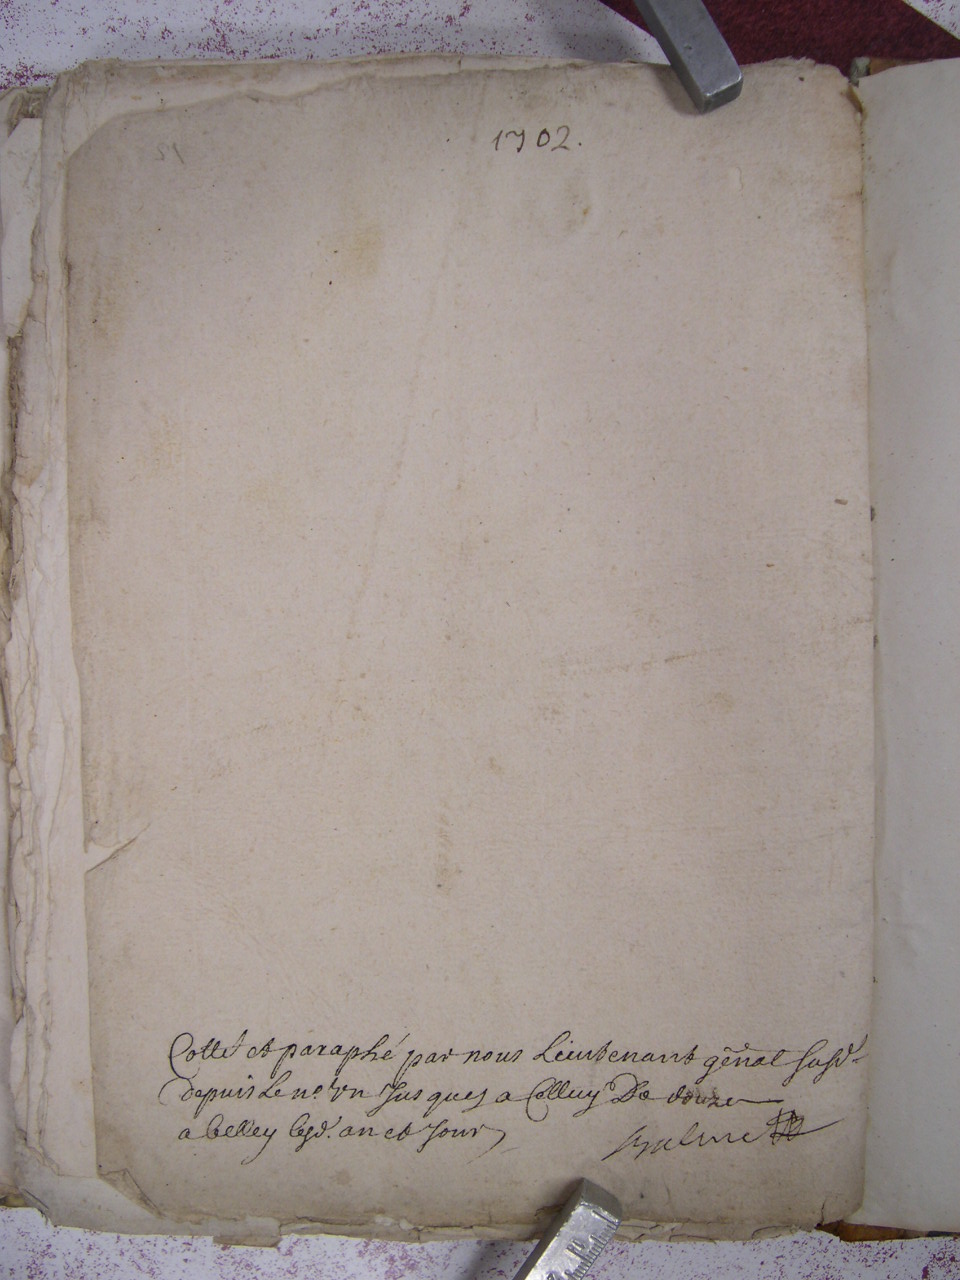 1702.
Cotté et paraphé par nous Lieutenant gñal susd.
depuis Le no. vn Jusques a Celluy De douze
a belley lesd. an et Jour